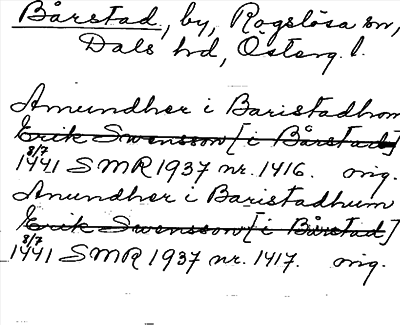 Bårstad, by, Rogslösa sn,
Dals hd, Österg. l.
Amundher i Baristadhom
Erik Swensson [i Bårstad]
8/7
1441 SMR 1937 nr. 1416. orig.
Anundher i Baristadhum
Erik Swensson [i Bårstad]
8/7
1441 SMR 1937 nr. 1417. orig.